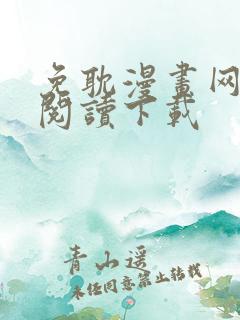 免耽漫畫网
閱讀下載
青山遥
未经同意禁止转载